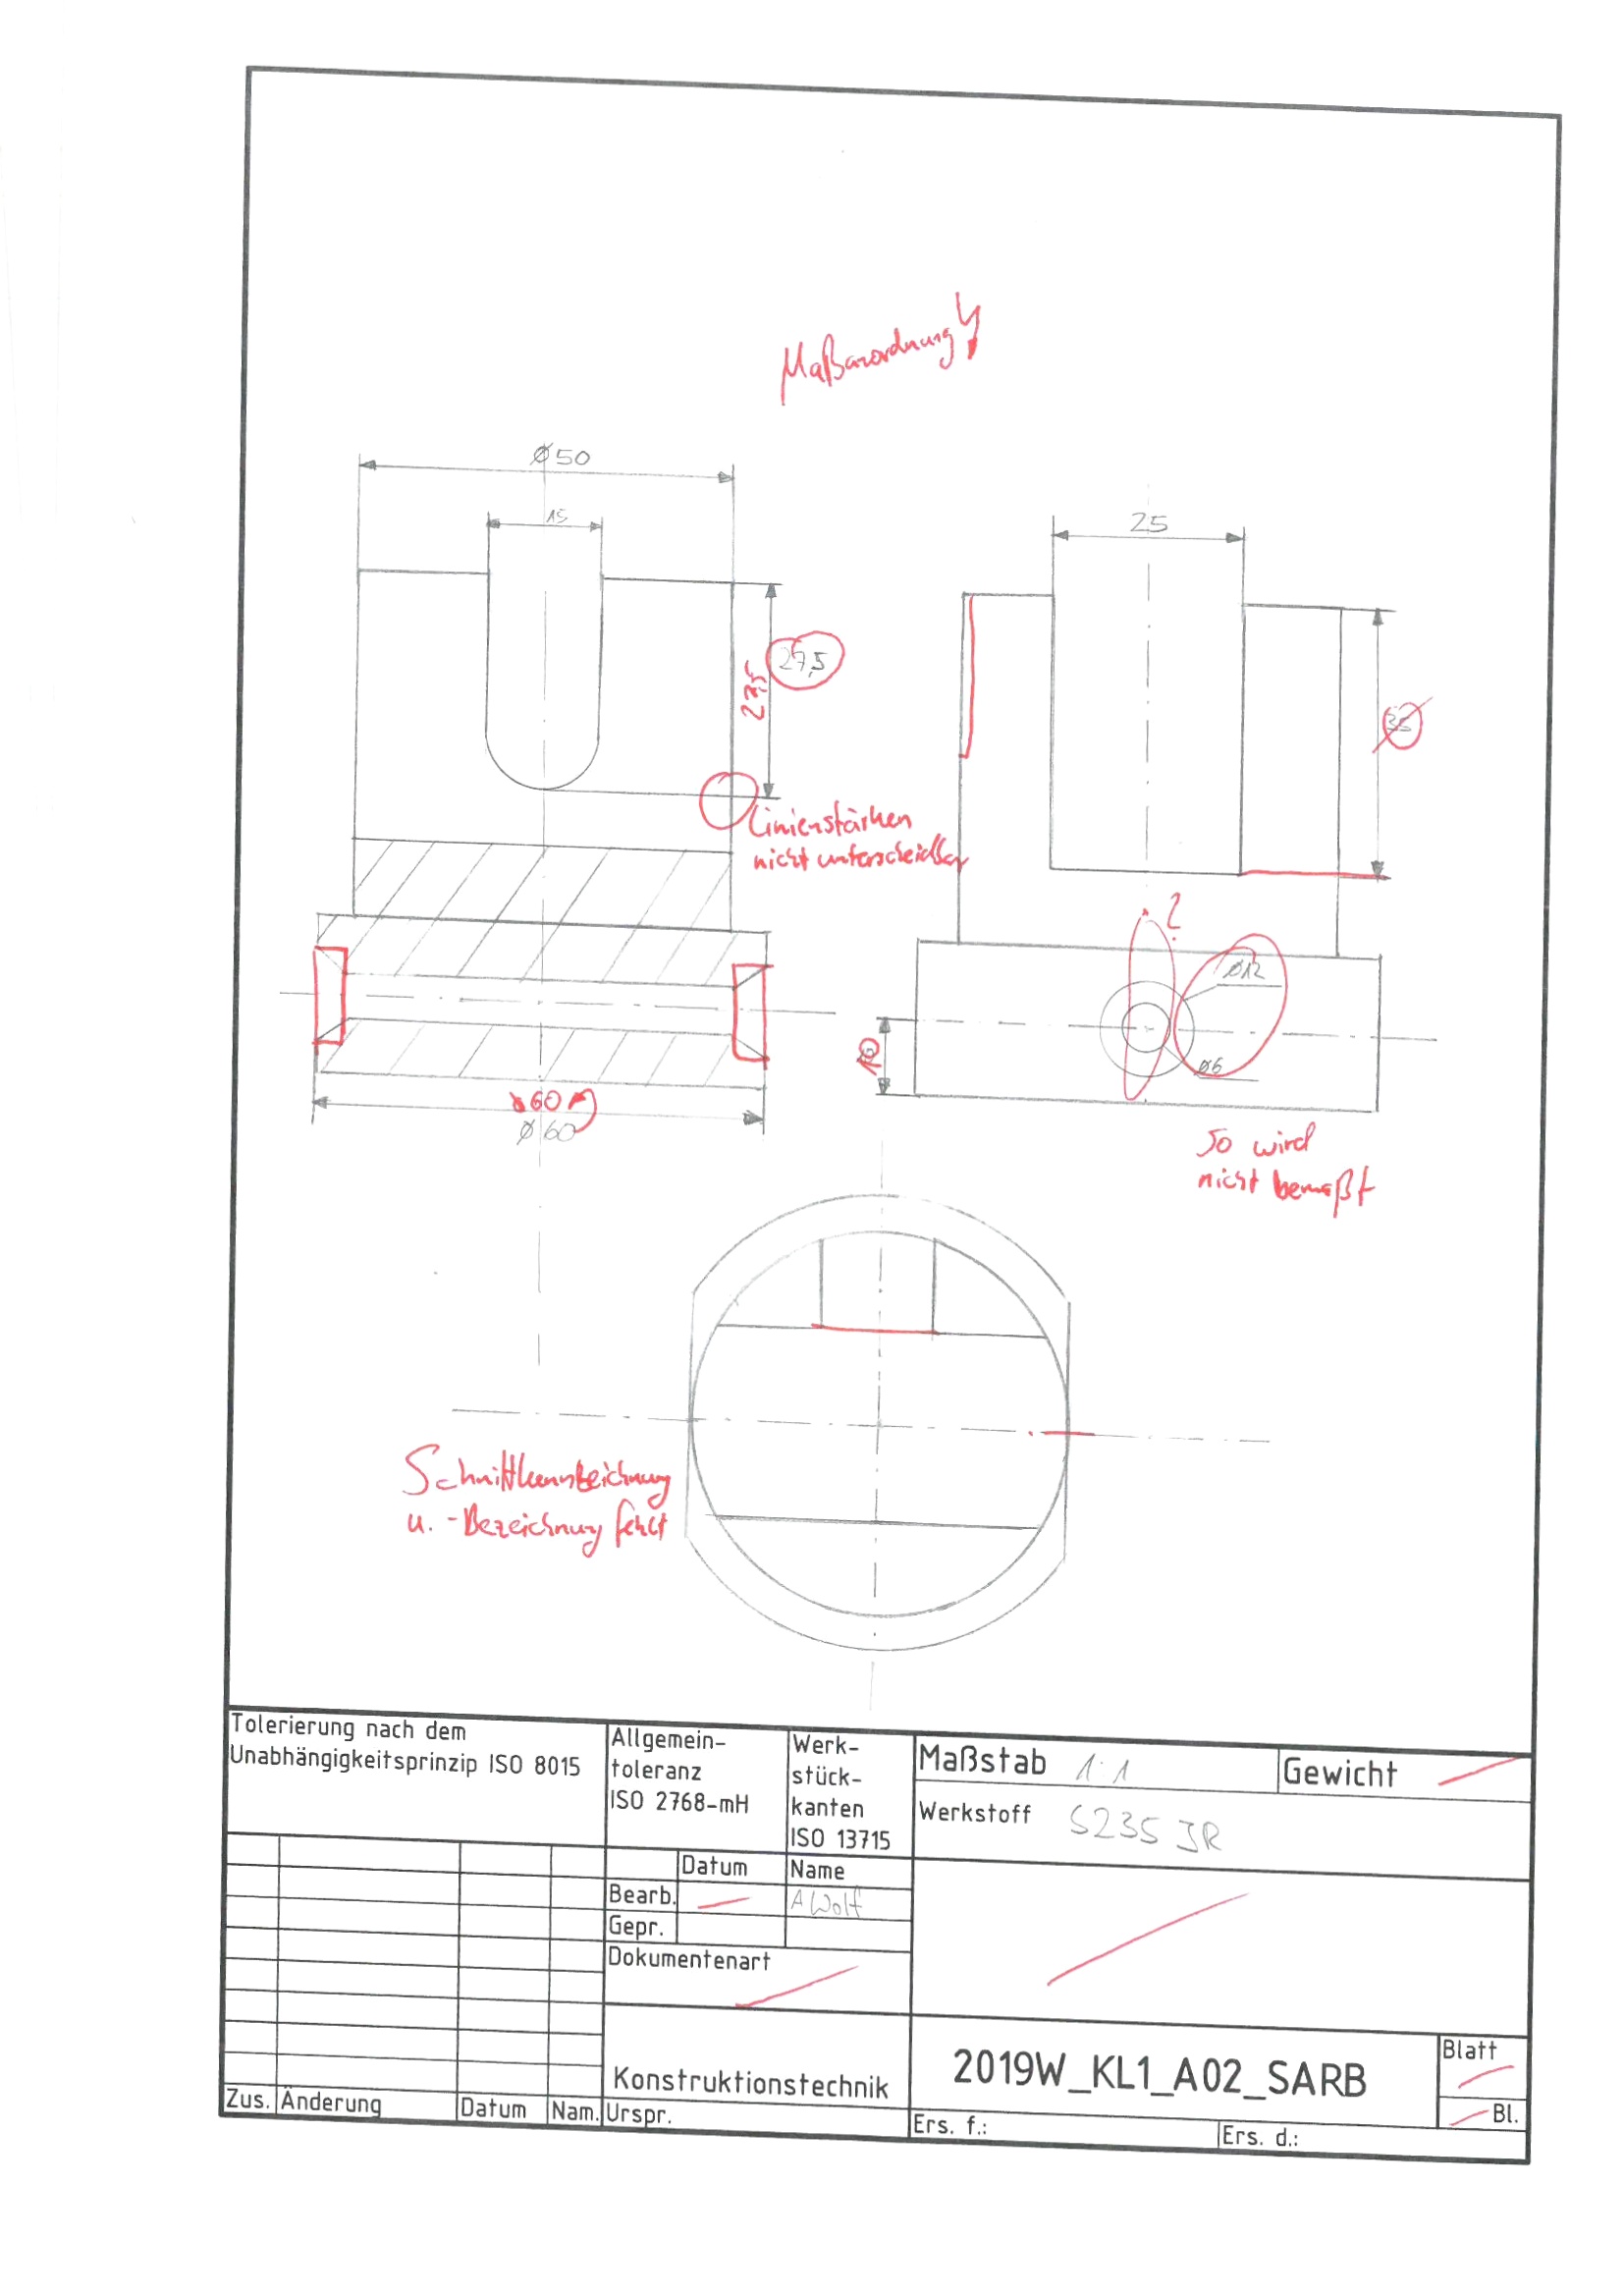 Maßanordnung
Ø50
15
25
27,5
27,5
35
Linienstärken
nicht unterscheidbar
?
Ø12
10
Ø6
60
Ø60
So wird
nicht bemaßt
Schnittkennzeichnung
u. -Bezeichnung fehlt
Tolerierung nach dem
Unabhängigkeitsprinzip ISO 8015
Allgemein-
toleranz
ISO 2768-mH
Werk-
stück-
kanten
ISO 13715
Maßstab 1:1
Gewicht
Werkstoff S235 JR
Datum Name
Bearb. A Wolf
Gepr.
Dokumentenart
Konstruktionstechnik
2019W_KL1_A02_SARB
Blatt
Bl.
Zus. Änderung Datum Nam. Urspr.
Ers. f.: Ers. d.: